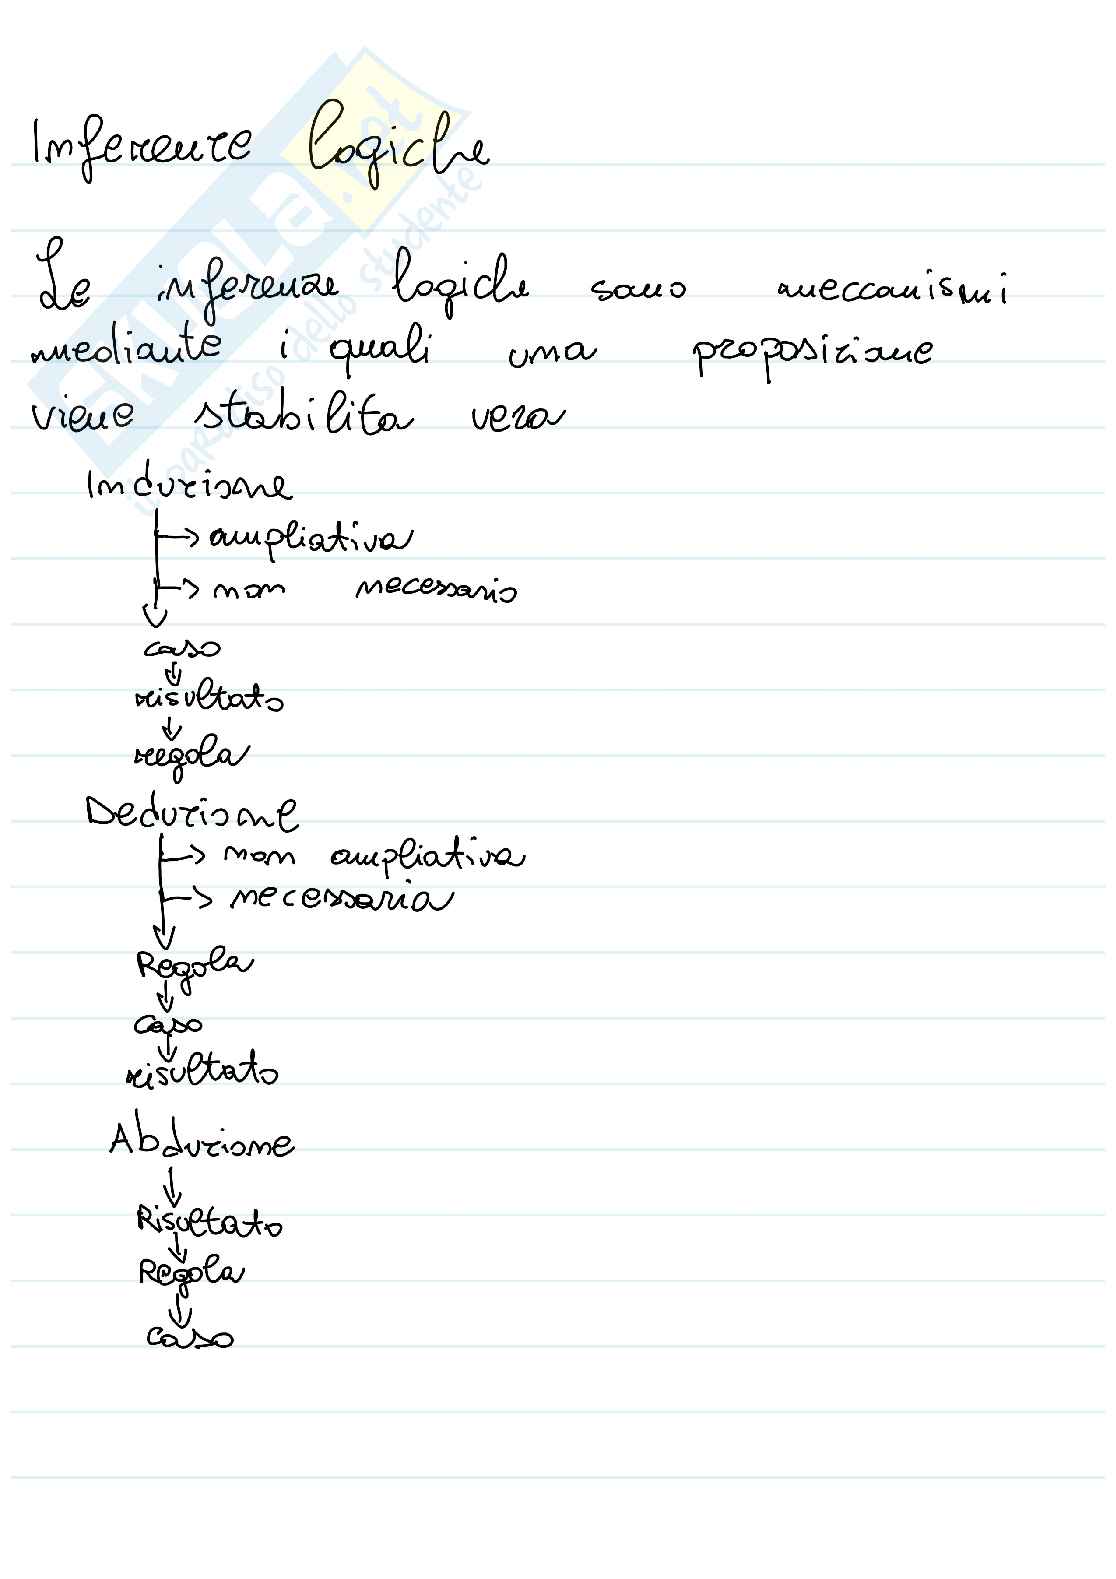 Inferenze logiche
SKUOLA.net
il paradiso dello studente
Le inferenze logiche sono meccanismi
mediante i quali una proposizione
viene stabilita vera
Induzione
→ ampliativa
→ non necessario
caso
↓
risultato
↓
regola
Deduzione
→ non ampliativa
→ necessaria
Regola
↓
caso
↓
risultato
Abduzione
↓
Risultato
↓
Regola
↓
caso